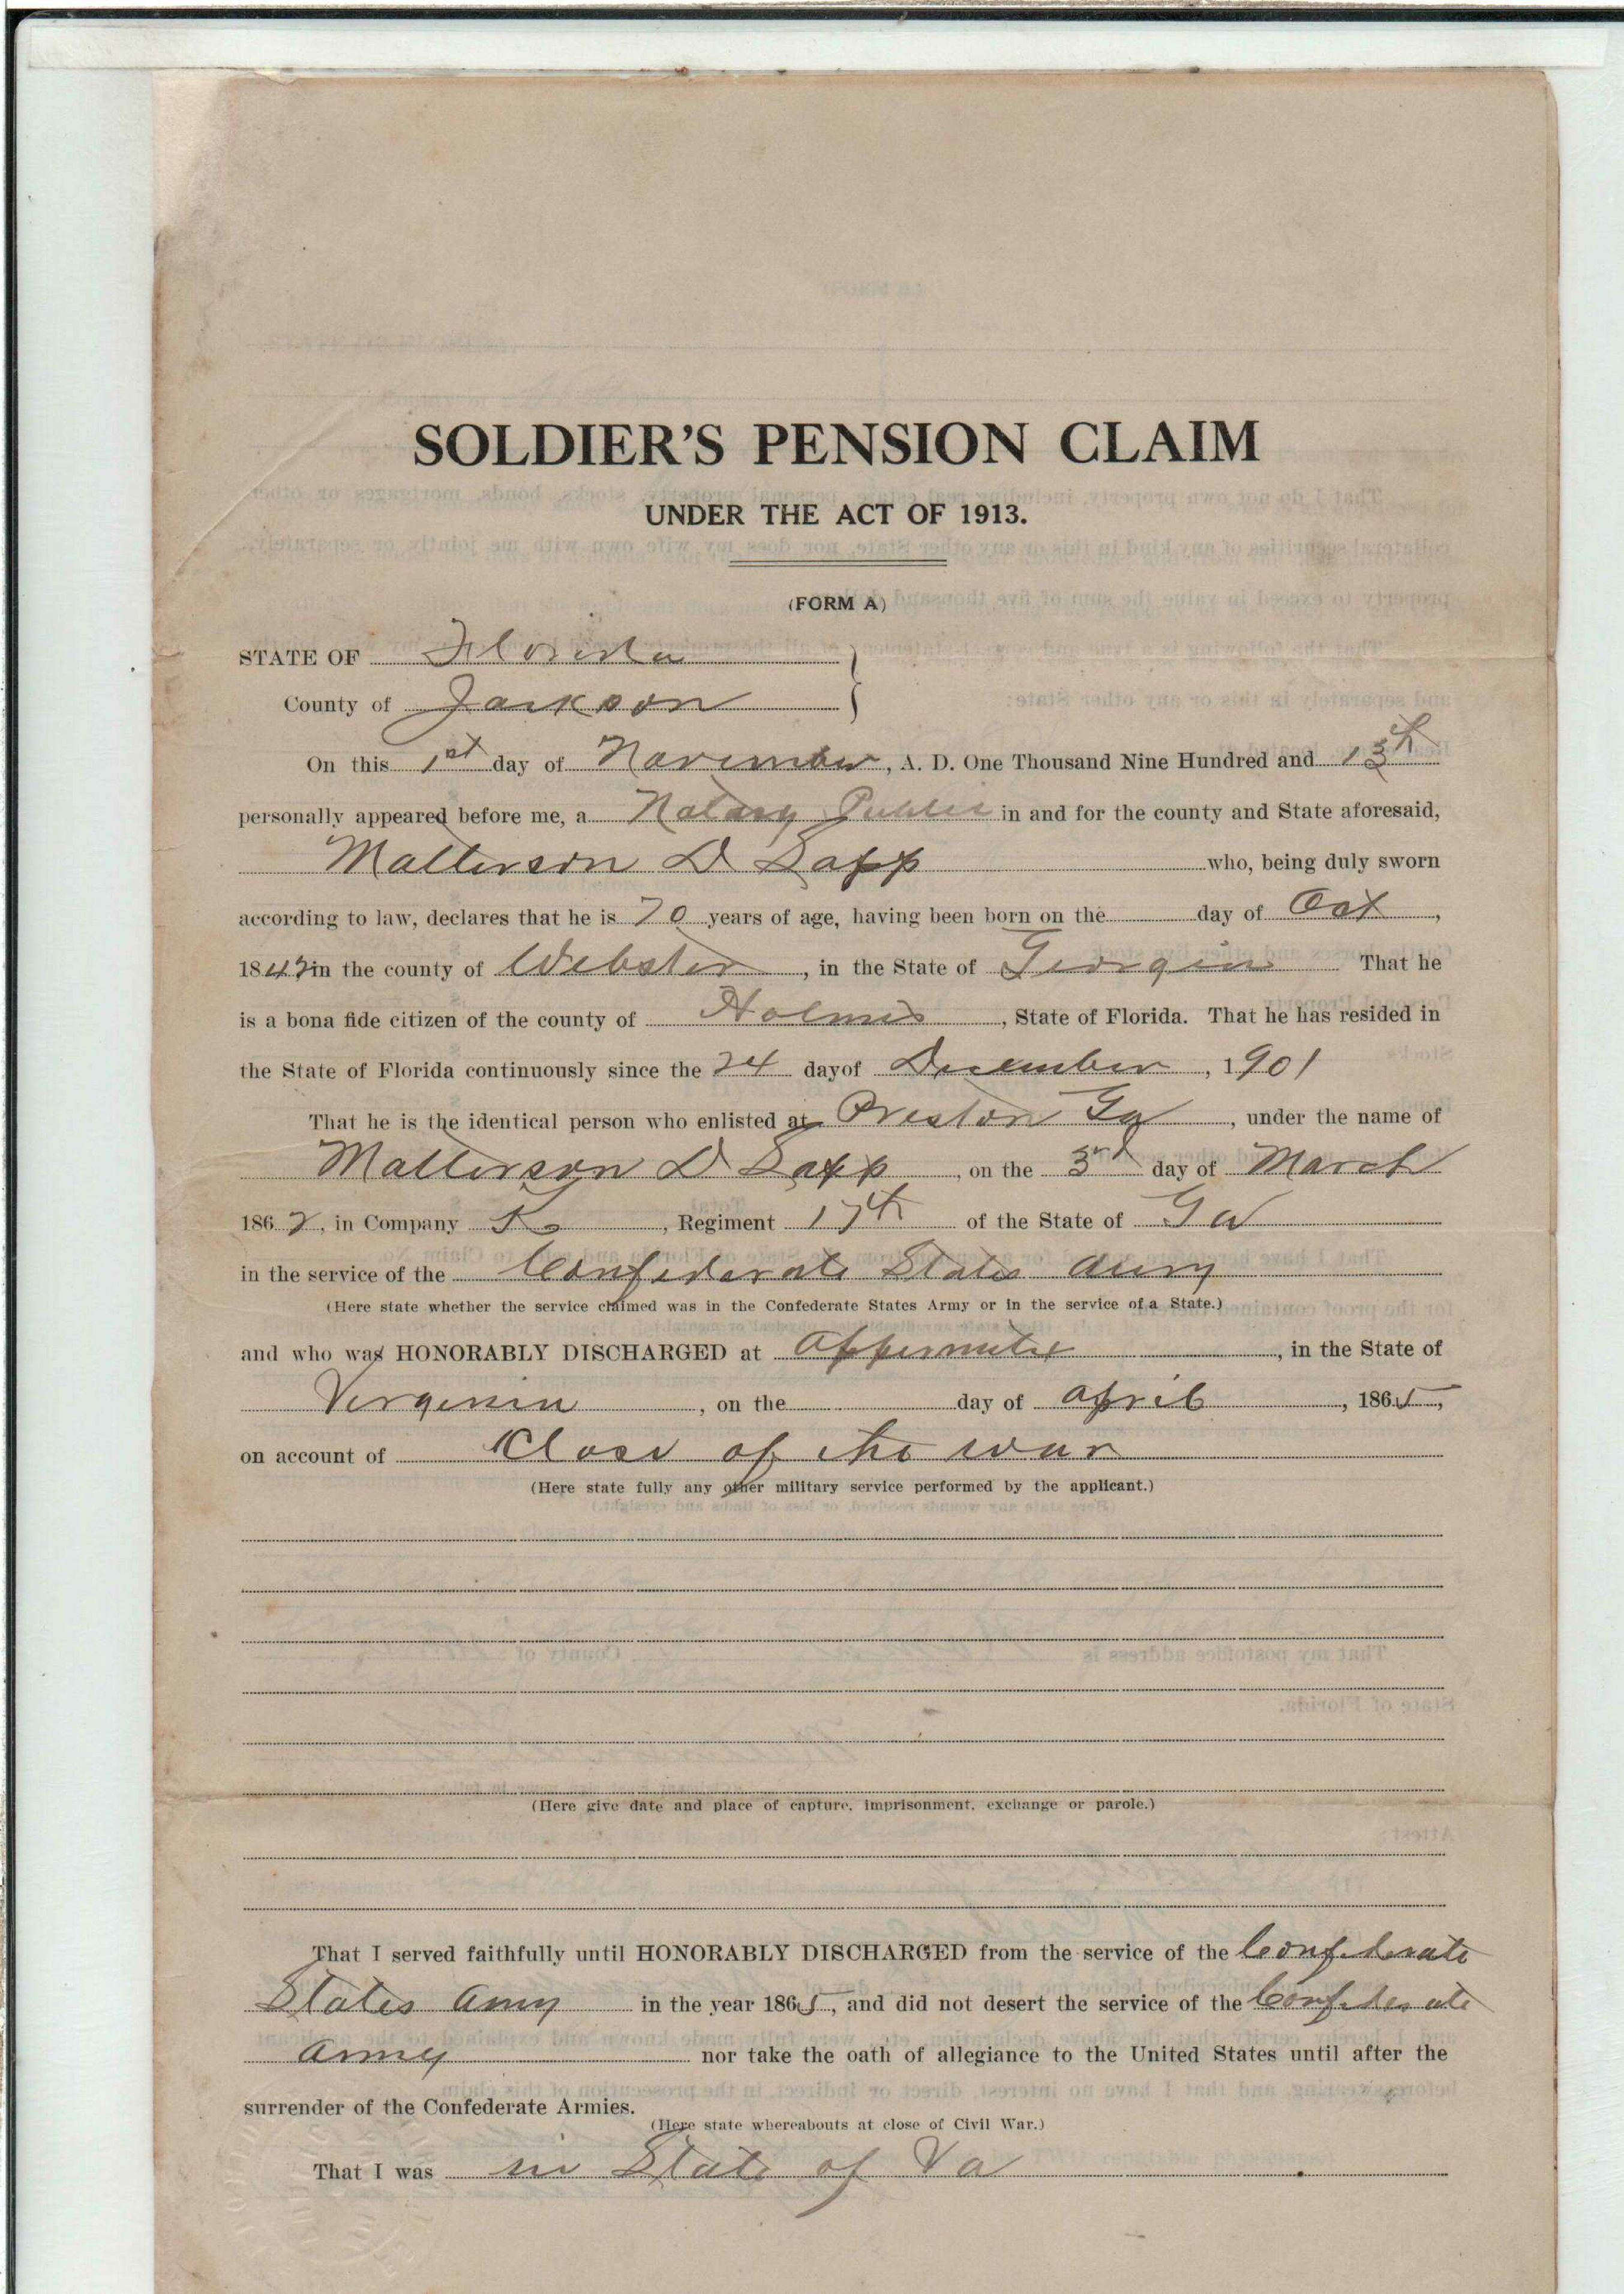 SOLDIER'S PENSION CLAIM
UNDER THE ACT OF 1913.
(FORM A)
STATE OF Florida
County of Jackson
On this 1st day of November, A. D. One Thousand Nine Hundred and 13th
personally appeared before me, a Notary Public in and for the county and State aforesaid,
Matterson D Sapp who, being duly sworn
according to law, declares that he is 70 years of age, having been born on the day of Oct,
1843 in the county of Webster, in the State of Georgia That he
is a bona fide citizen of the county of Holmes, State of Florida. That he has resided in
the State of Florida continuously since the 24 dayof December, 1901
That he is the identical person who enlisted at Preston Ga, under the name of
Matterson D Sapp, on the 3rd day of March
1862, in Company K, Regiment 17th of the State of Ga
in the service of the Confederate States Army
(Here state whether the service claimed was in the Confederate States Army or in the service of a State.)
and who was HONORABLY DISCHARGED at , in the State of
Virginia, on the day of April, 1865,
on account of Close of the war
(Here state fully any other military service performed by the applicant.)
(Here give date and place of capture, imprisonment, exchange or parole.)
That I served faithfully until HONORABLY DISCHARGED from the service of the Confederate
States Army in the year 1865, and did not desert the service of the Confederate
Army nor take the oath of allegiance to the United States until after the
surrender of the Confederate Armies.
(Here state whereabouts at close of Civil War.)
That I was in State of Va